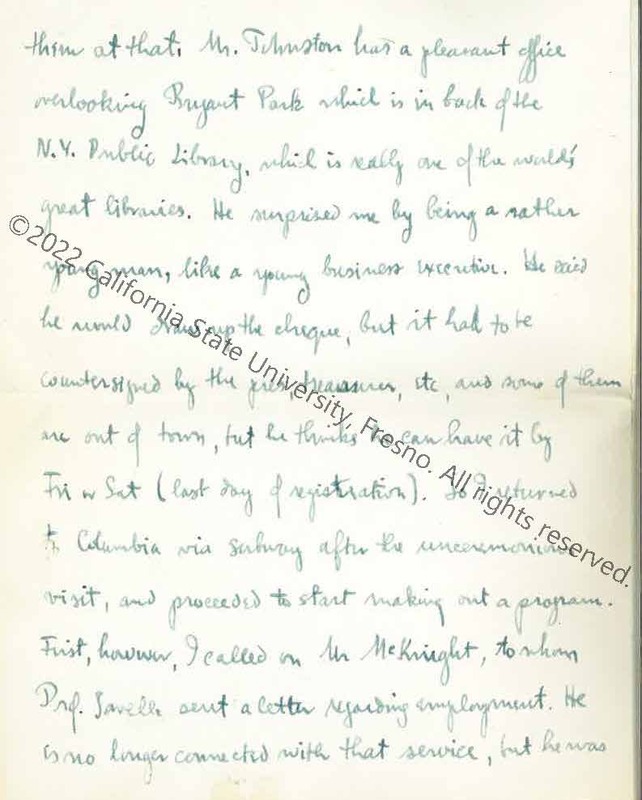 them at that. Mr. Johnston has a pleasant office
overlooking Bryant Park which is in back of the
N.Y. Public Library, which is really one of the world's
great libraries. He surprised me by being a rather
young man, like a young business executive. He said
he would draw up the cheque, but it had to be
countersigned by the pres, treasurer, etc, and some of them
are out of town, but he thinks he can have it by
Fri or Sat (last day of registration). So I returned
to Columbia via subway after the unceremonious
visit, and proceeded to start making out a program.
First, however, I called on Mr McKnight, to whom
Prof. Savelle sent a letter regarding employment. He
is no longer connected with that service, but he was
©2022 California State University, Fresno. All rights reserved.